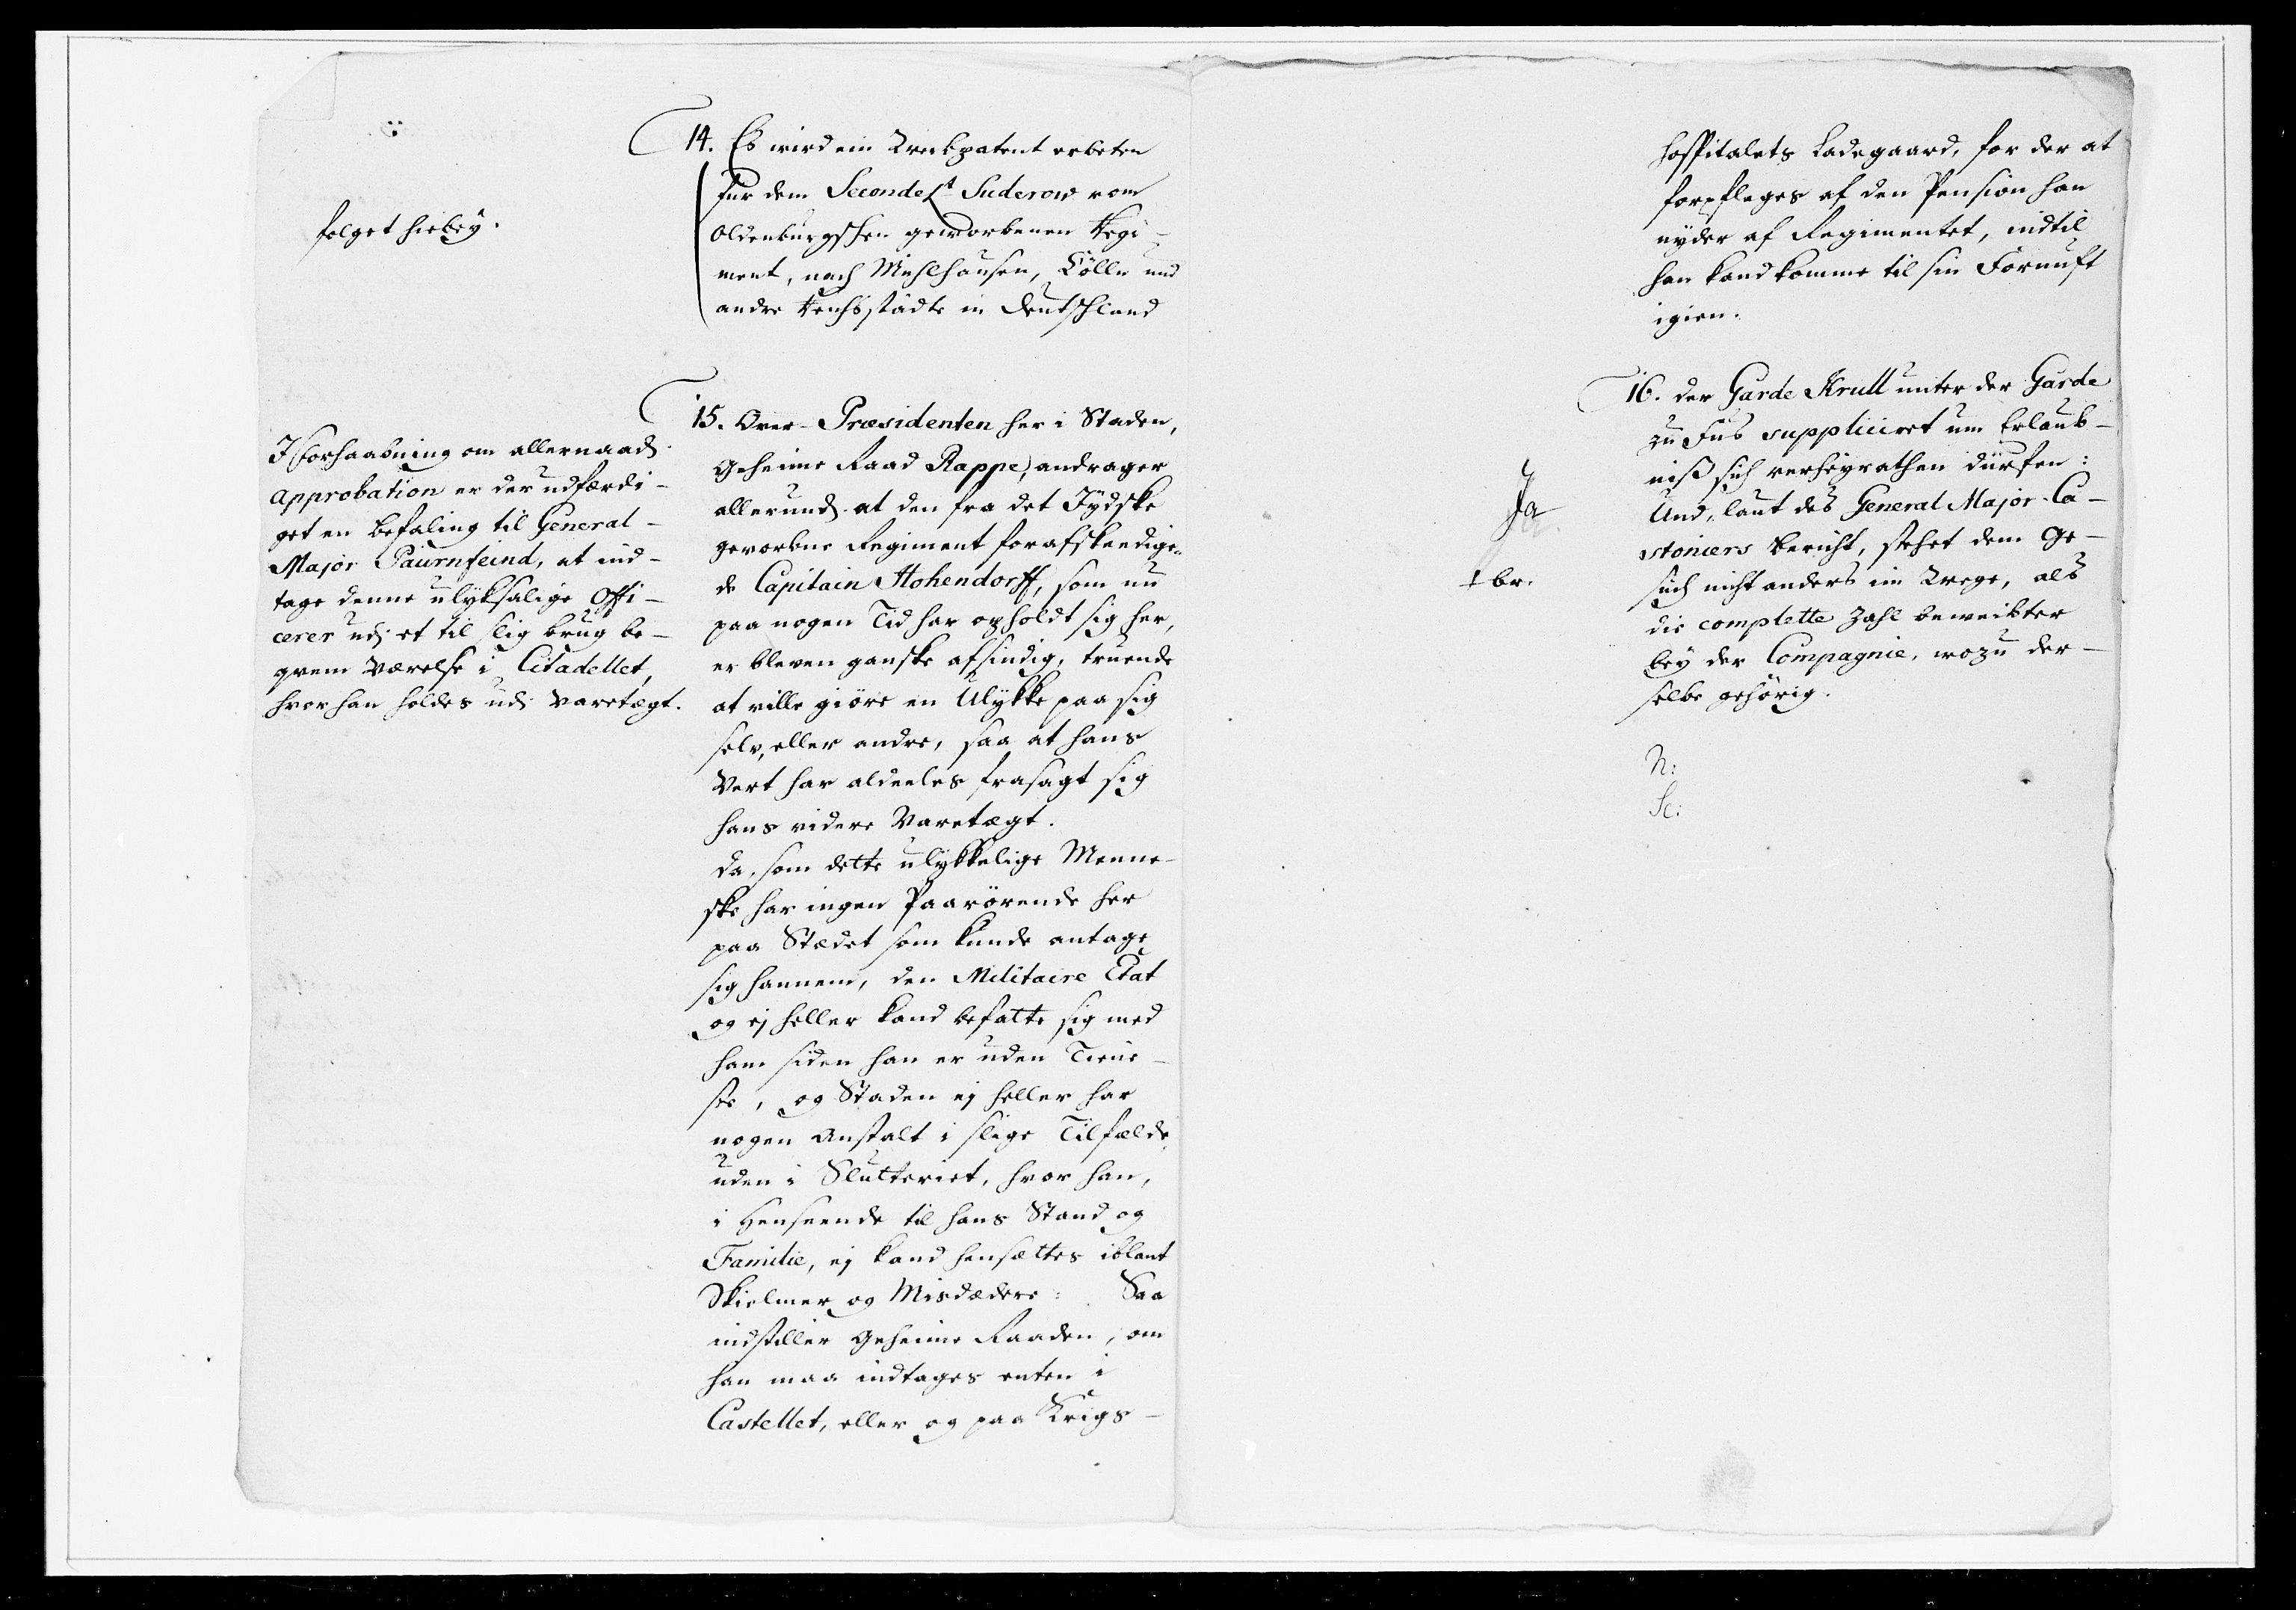 14. Es wird ein Werbpatent erbeten
für dem Seconde Lt Suderow vom
Oldenburgschen geworbenen Regi-
ment, nach Mühlhausen, Cölln und
andre Reichsstädte in Deutschland
folget hiebey.
15. Over-Præsidenten her i Staden,
Geheime Raad Rappe, andrager
allerund. at den fra det Jydske
gevorbne Regiment forafskeedigen-
de Capitain Hohendorff, som nu
paa nogen Tid har opholdt sig her,
er bleven ganske afsindig, truende
at ville giöre en Ulykke paa sig
selv, eller andre, saa at hans
Vert har aldeeles frasagt sig
hans videre Varetægt.
da, som dette ulykkelige Menne-
ske har ingen Paarörende her
paa Stædet som kunde antage
sig hannem, den Militaire Etat
og ej heller kand befatte sig med
ham siden han er uden Tiene-
ste, og Staden ej heller har
nogen Anstalt i slige Tilfælde,
uden i Slutteriet, hvor han,
i Henseende til hans Stand og
Familie, ej kand hensættes iblant
Skielmer og Misdædere: Saa
indstiller Geheime Raaden, om
han maa indtages enten i
Castellet, eller og paa Krigs-
I Forhaabning om allernaad.
approbation er der udfærdi-
get en Befaling til General-
Major Paurnfeind, at ind-
tage denne ulyksalige Offi-
cerer udj et til slig brug be-
qvem Værelse i Citadellet,
hvor han holdes udj Varetægt.
Hospitalets Ladegaard, for der at
forpfleges af den Pension han
nyder af Regimentet, indtil
han kand komme til sin Fornuft
igien.
16. der Garde Krull unter der Garde
zu Fus suppliciret um Erlaub-
niß sich verheyrathen dürfen:
Und, laut des General Major Ca-
stoniers Bericht, stehet dem Ge-
such nicht anders im Wege, als
die complette Zahl beweibter
bey der Compagnie, wozu der-
selbe gehörig.
Ja
‡ br.
N:
Sc: